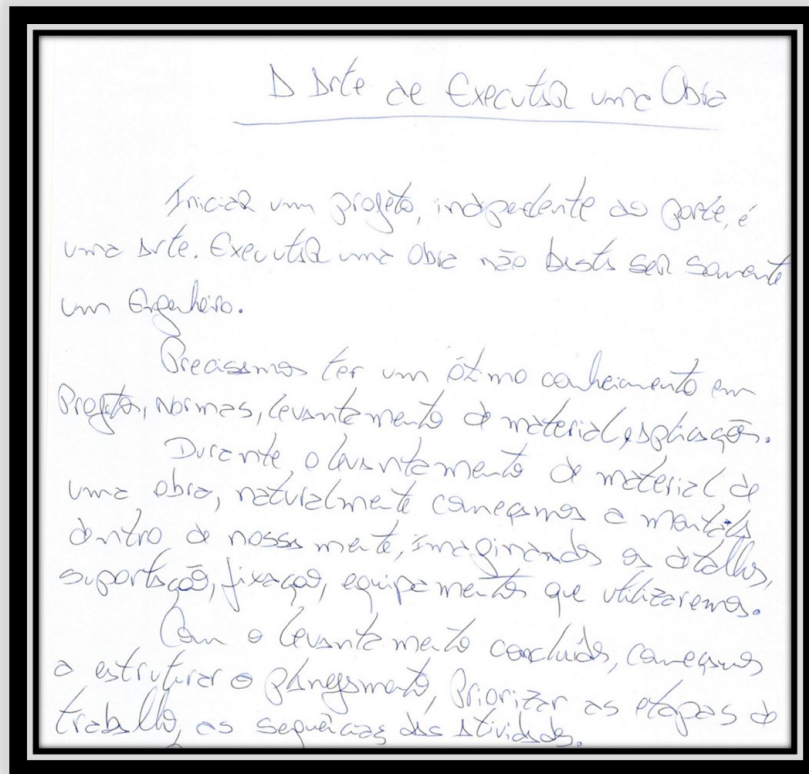 A Arte de Executar uma Obra
Iniciar um projeto, independente do porte, é
uma arte. Executar uma obra não basta ser somente
um Engenheiro.
Precisamos ter um ótimo conhecimento em
Projetos, normas, levantamento de material, aplicação.
Durante o levantamento de material de
uma obra, naturalmente começamos a montala
dentro de nossa mente, imaginando os detalhes,
suportação, fixação, equipamentos que utilizaremos.
Com o levantamento concluído, começamos
a estruturar o planejamento, Priorizar as etapas do
trabalho, as sequências das atividades.